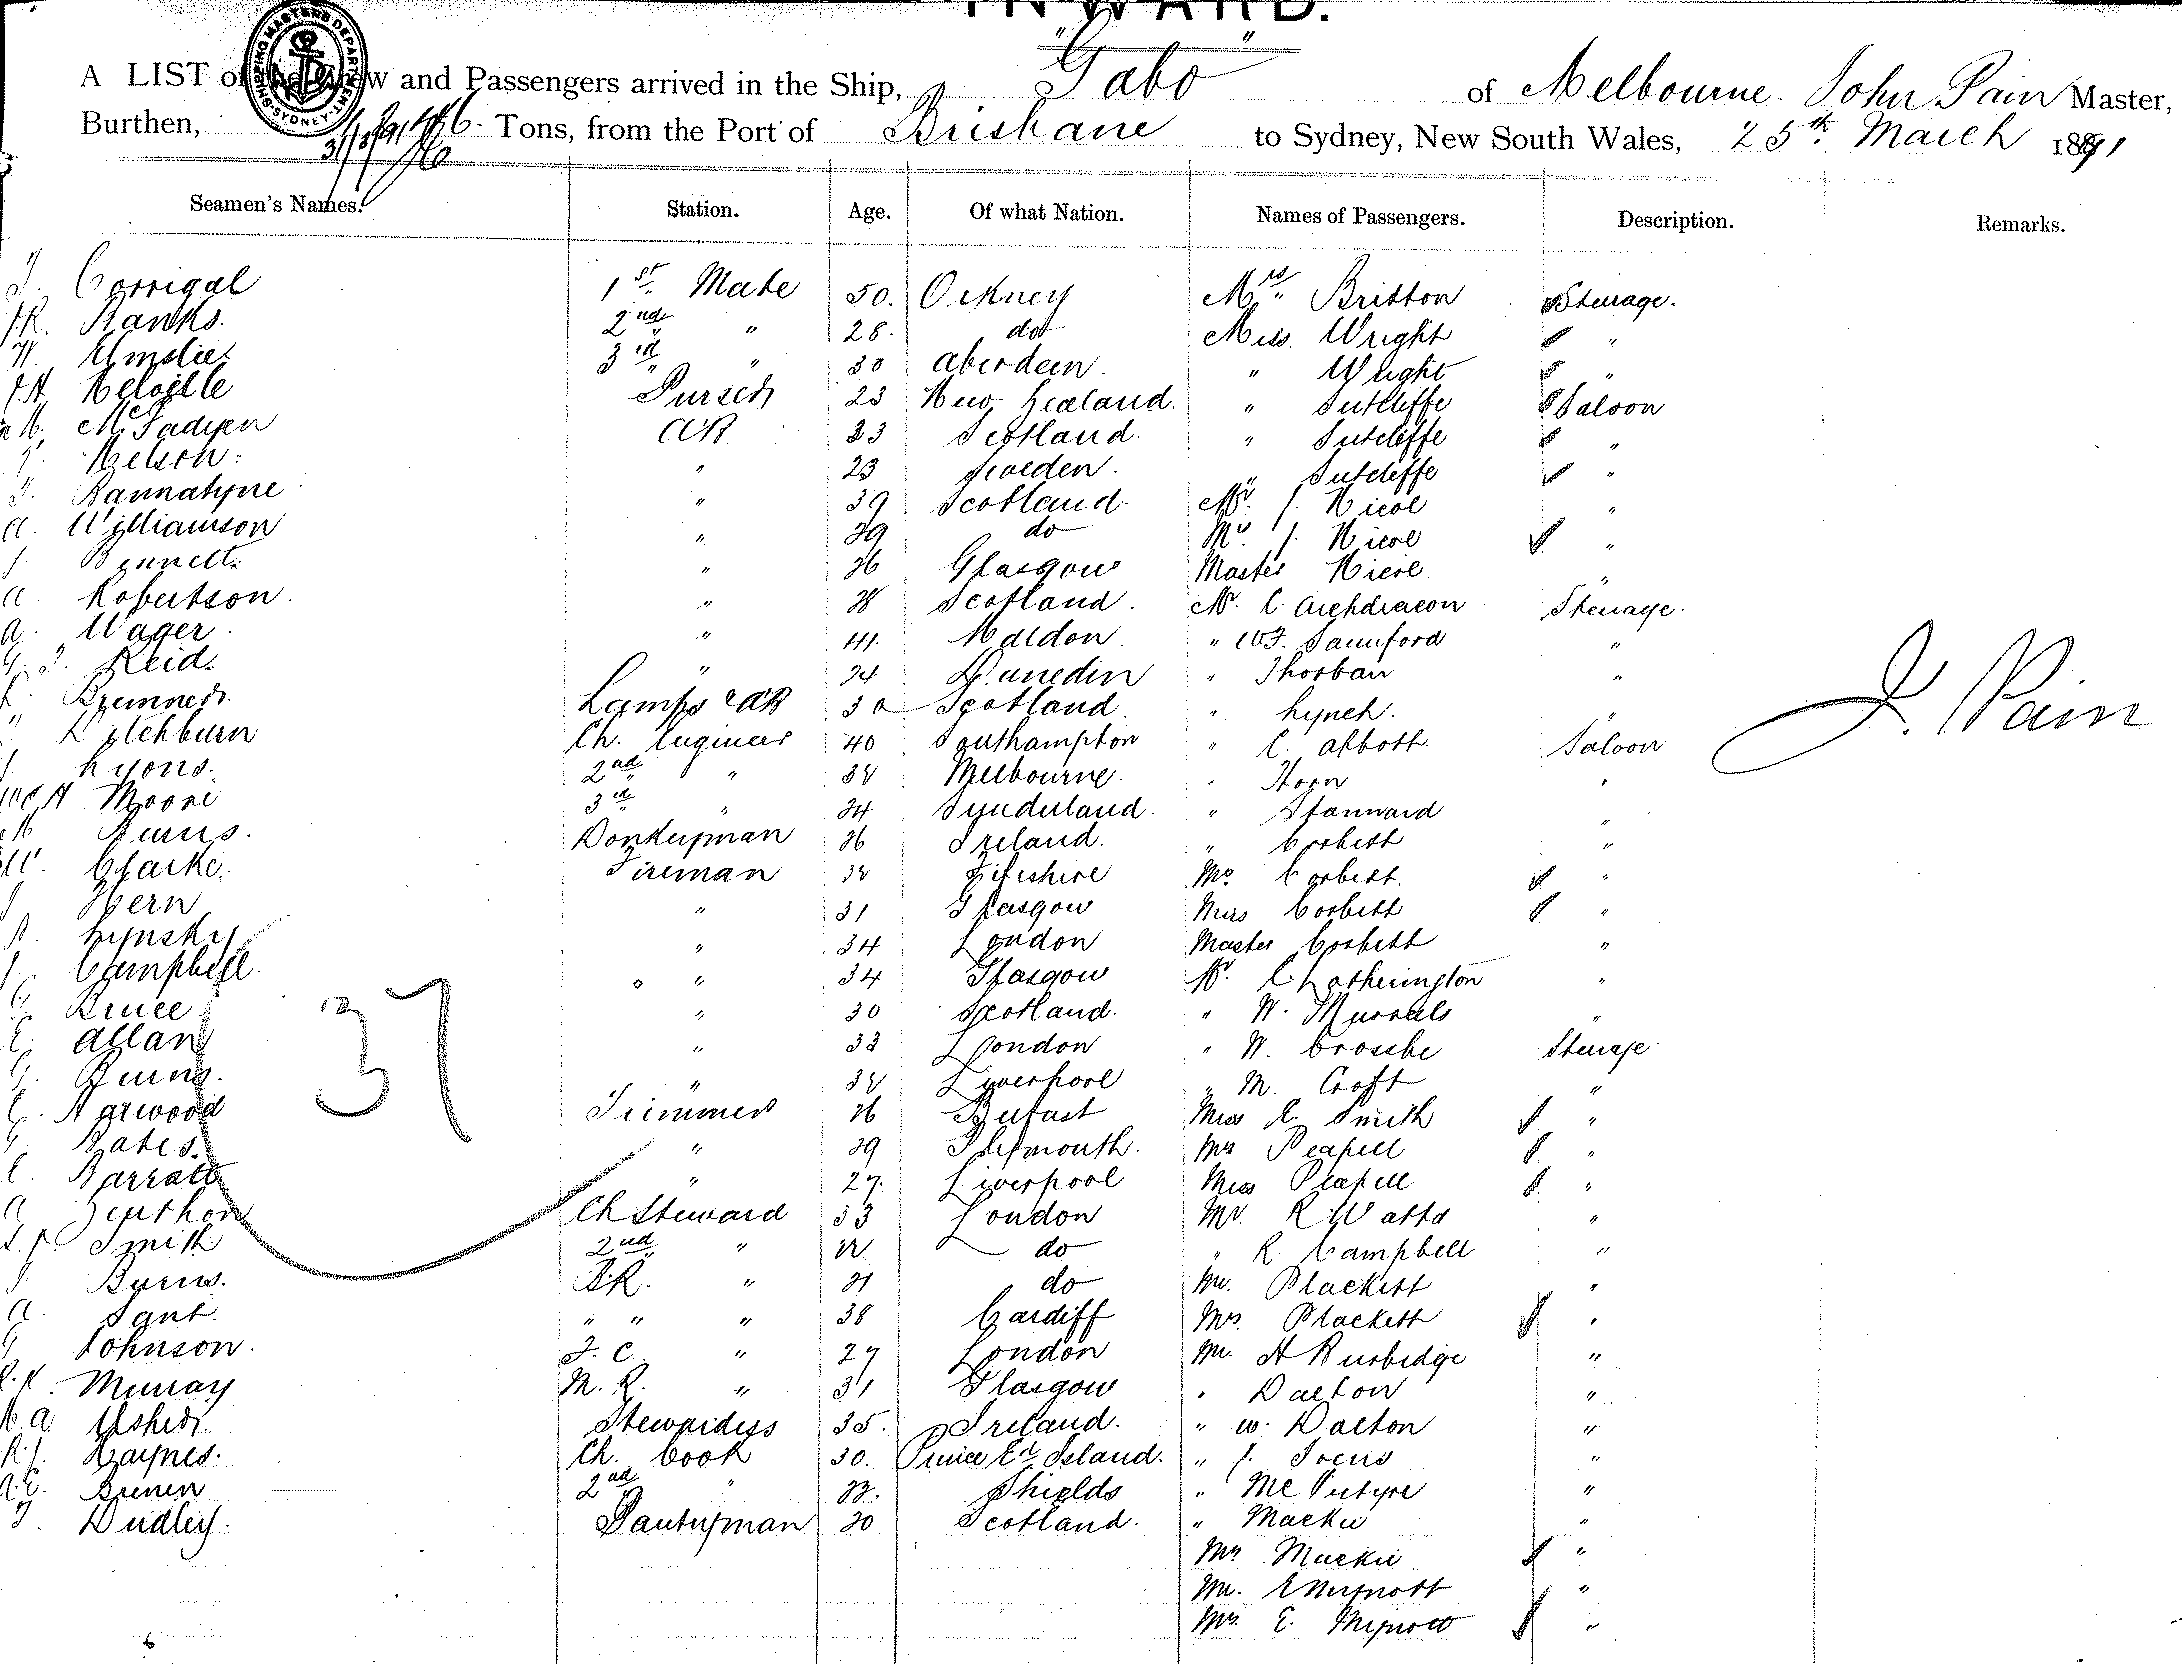 INWARD.
A LIST of the Crew and Passengers arrived in the Ship, "Gabo" of Melbourne. John Pain Master,
Burthen, Tons, from the Port of Brisbane to Sydney, New South Wales, 25th March 1891
Seamen's Names. Station. Age. Of what Nation. Names of Passengers. Description. Remarks.
Corrigal 1st Mate 50. Orkney Mrs Britton Steerage.
Banks. 2nd " 28. do Miss Wright "
Elmslie. 3rd " 30 Aberdeen. " Wright "
Melville Purser 23 New Zealand. " Sutcliffe Saloon
McFadyen AB 33 Scotland. " Sutcliffe "
Nelson. " 23 Sweden. " Sutcliffe "
Bannatyne " 39 Scotland. Mr. J. Nicol "
A. Williamson " 39 do J. Nicol "
J. Bennett. " 26 Glasgow Master Nicol "
A. Robertson. " 28 Scotland. Mr. C. Archdeacon Steerage.
A. Wager. " 41. Maldon " "
Reid. " 24 Dunedin " Thorban "
Bremner. Lamps & AB 30 Scotland. " Lynch. "
Litchburn Ch. Engineer 40 Southampton " C. Abbott. Saloon
Lyons. 2nd " 34 Melbourne. " Horn "
Moore 3rd " 24 Sunderland. " Stannard "
Burns. Donkeyman 26 Ireland. " Corbett "
Clarke. Fireman Fifeshire Mrs Corbett. "
Hern " 31 Glasgow Miss Corbett "
Lynsky " 34 London Master Corbett "
J. Campbell. " 34 Glasgow Mr. C. Hetherington "
G. Bruce " 30 Scotland. " W. "
Allan " 33 London " W. Steerage
Burns. " 34 Liverpool " M. Croft "
Harwood Trimmer 26 Belfast Miss E. Smith "
Bates. " 29 Plymouth. Mrs Peapell "
Barratt " 27. Liverpool Miss Peapell "
A. Ch Steward 33 London Mr. R Watts "
Smith 2nd " do " R Campbell "
Burns. B.R. " 21 do Mr. Plackett "
A. Sant. " " " 38 Cardiff Mrs. Plackett "
Johnson. F. C. " 27 London Mr. A Burbidge "
Murray M. R. " 31 Glasgow " Dalton "
Usher. Stewardess 35. Ireland. " W. Dalton "
Haynes. Ch. Cook 30. Prince Ed. Island. " J. "
2nd " Shields " McIntyre "
Dudley. Pantryman 20 Scotland. " Mackie "
Mrs Mackie "
Mr. "
Mrs. E. "
37
J. Pain